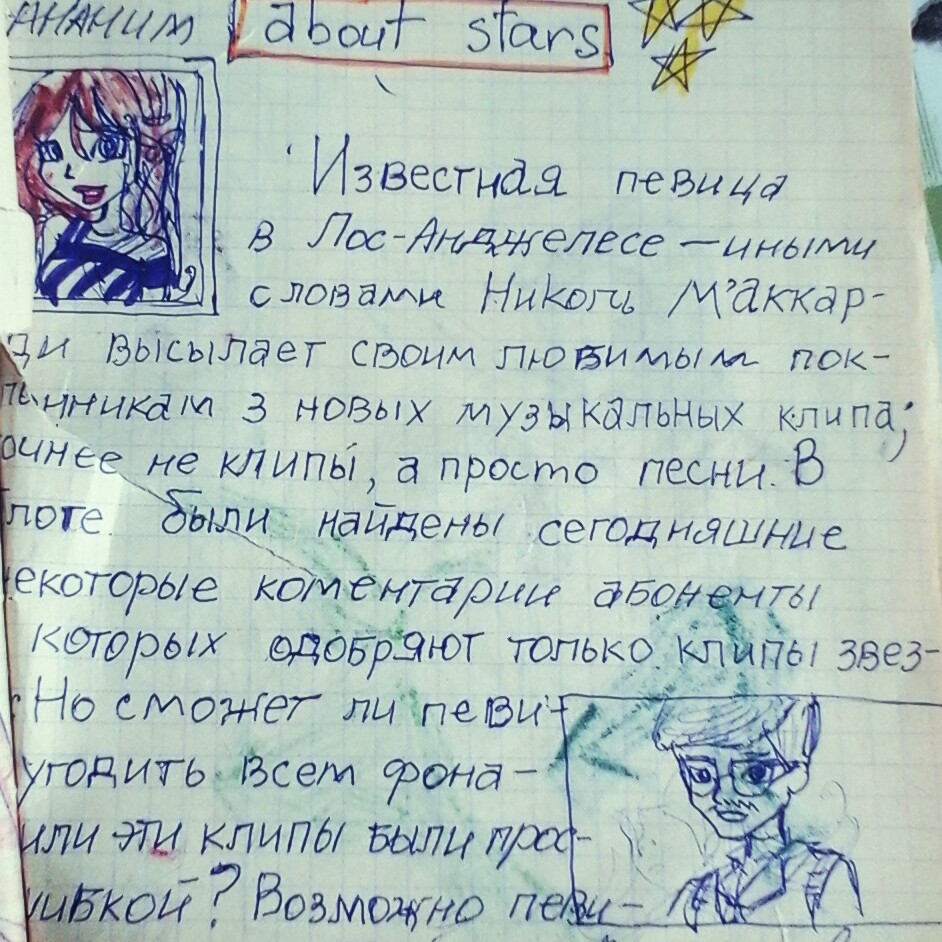 АНАНИМ about stars
Известная певица
в Лос-Анджелесе — иными
словами Николь М'аккар-
ди высылает своим любимым пок-
лонникам 3 новых музыкальных клипа;
очнее не клипы, а просто песни. В
логе были найдены сегодняшние
екоторые коментарии абоненты
которых одобряют только клипы звез-
Но сможет ли певи-
угодить всем фона-
или эти клипы были прос-
шибкой? Возможно певи-